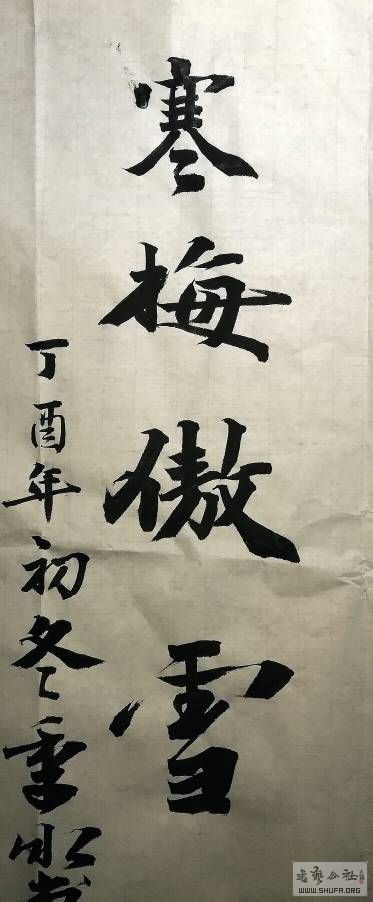 寒梅傲雪
丁酉年初冬季水书
WWW.SHUFA.ORG